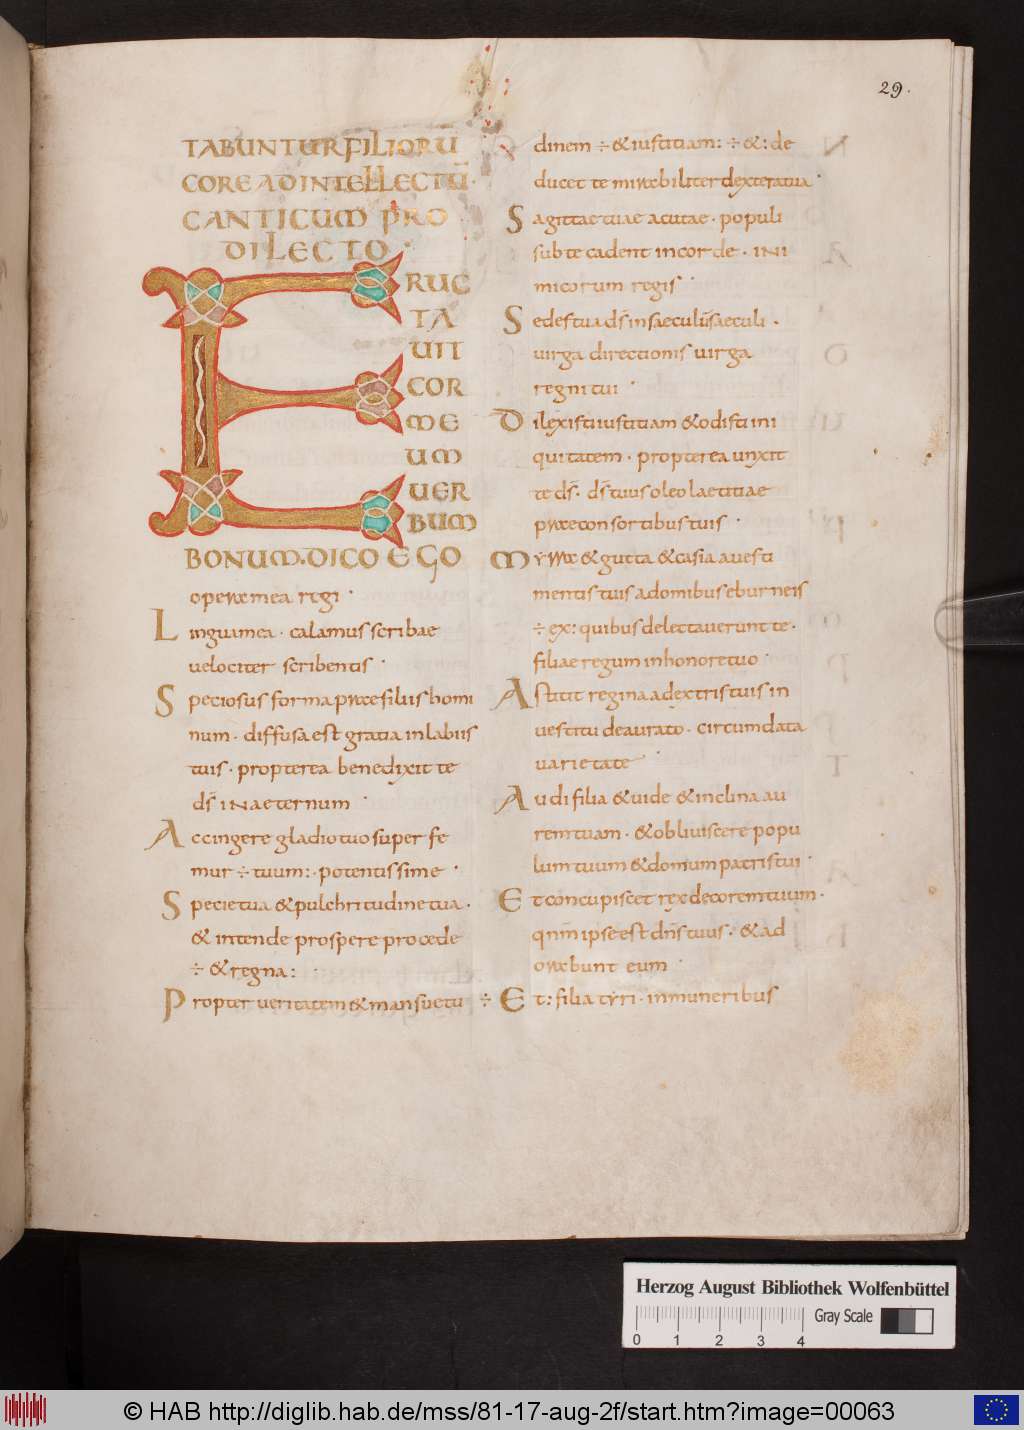 29.
TABUNTUR FILIORŪ
CORE AD INTELLECTŪ
CANTICUM PRO
DILECTO
ERUC
TA
UIT
COR
ME
UM
UER
BUM
BONUM. DICO EGO
opera mea regi.
Lingua mea. calamus scribae
velociter scribentis.
Speciosus forma prae filiis homi
num. diffusa est gratia in labiis
tuis. propterea benedixit te
ds̄ in aeternum.
Accingere gladio tuo super fe
mur ÷ tuum: potentissime.
Specie tua & pulchritudine tua.
& intende prospere procede
÷ & regna:
Propter veritatem & mansuetu
dinem ÷ & iustitiam: ÷ &: de
ducet te mirabiliter dextera tua.
Sagittae tuae acutae. populi
sub te cadent in corde. ini
micorum regis.
Sedes tua ds̄ in saeculū saeculi.
virga directionis uirga
regni tui.
Dilexisti iustitiam & odisti ini
quitatem. propterea unxit
te ds̄. ds̄ tuus oleo laetitiae
prae consortibus tuis.
Myrra & gutta & casia a uesti
mentis tuis a domibus eburneis
÷ ex: quibus delectauerunt te.
filiae regum in honore tuo.
Astitit regina a dextris tuis in
uestitu deaurato. circumdata
uarietate.
Audi filia & uide & inclina au
rem tuam. & obliuiscere popu
lum tuum & domum patris tui.
Et concupiscet rex decorem tuum.
qnm̄ ipse est dn̄s tuus. & ad
orabunt eum.
÷ Et: filia tyri. in muneribus
Herzog August Bibliothek Wolfenbüttel
Gray Scale
0 1 2 3 4
© HAB http://diglib.hab.de/mss/81-17-aug-2f/start.htm?image=00063